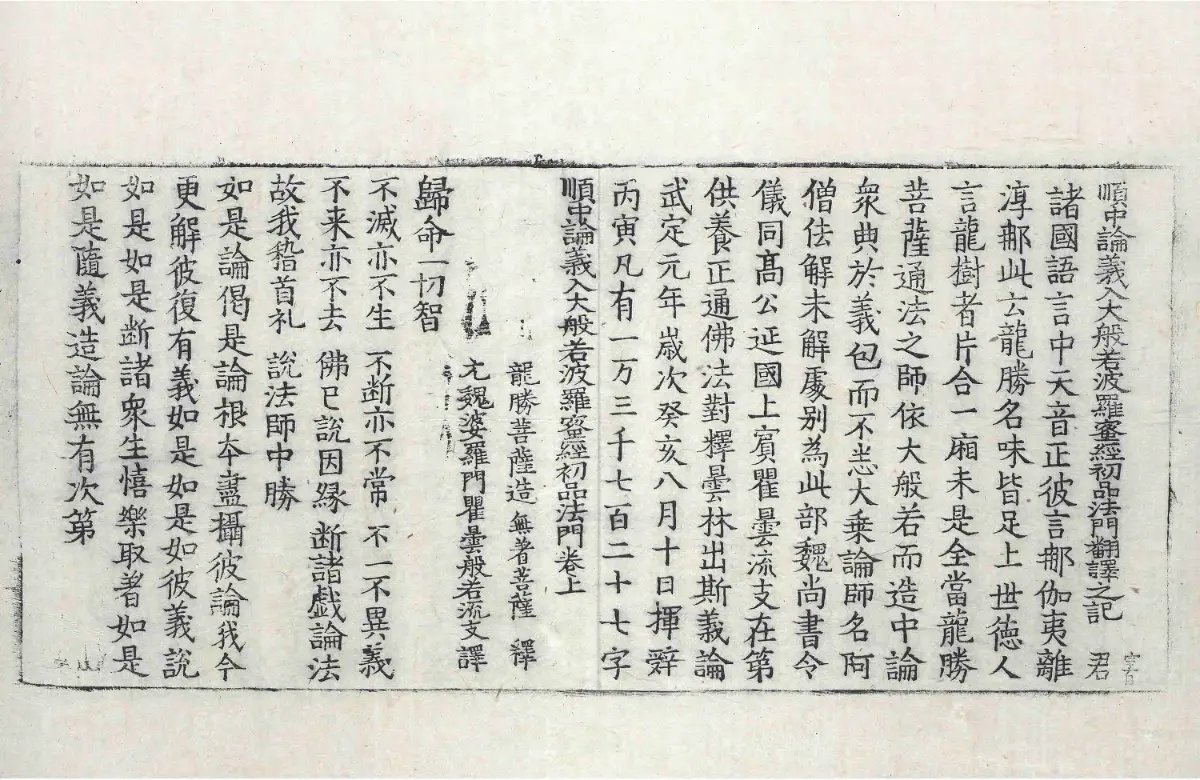 順中論義入大般若波羅蜜經初品法門翻譯之記 君
諸國語言中天音正彼言那伽夷離
淳那此云龍勝名味皆足上世德人
言龍樹者片合一廂未是全當龍勝
菩薩通法之師依大般若而造中論
衆典於義包而不悉大乗論師名阿
僧佉解未解處别為此部魏尚書令
儀同髙公延國上賔瞿曇流支在第
供養正通佛法對釋曇林出斯義論
武定元年嵗次癸亥八月十日揮辤
丙寅凡有一万三千七百二十七字
順中論義入大般若波羅蜜經初品法門卷上
龍勝菩薩造 無著菩薩 釋
元魏婆羅門瞿曇般若流支譯
歸命一切智
不滅亦不生 不断亦不常 不一不異義
不来亦不去 佛已說因縁 断諸戲論法
故我稽首礼 說法師中勝
如是論偈是論根本盡攝彼論我今
更解彼復有義如是如是如彼義說
如是如是断諸衆生憘樂取著如是
如是隨義造論無有次第